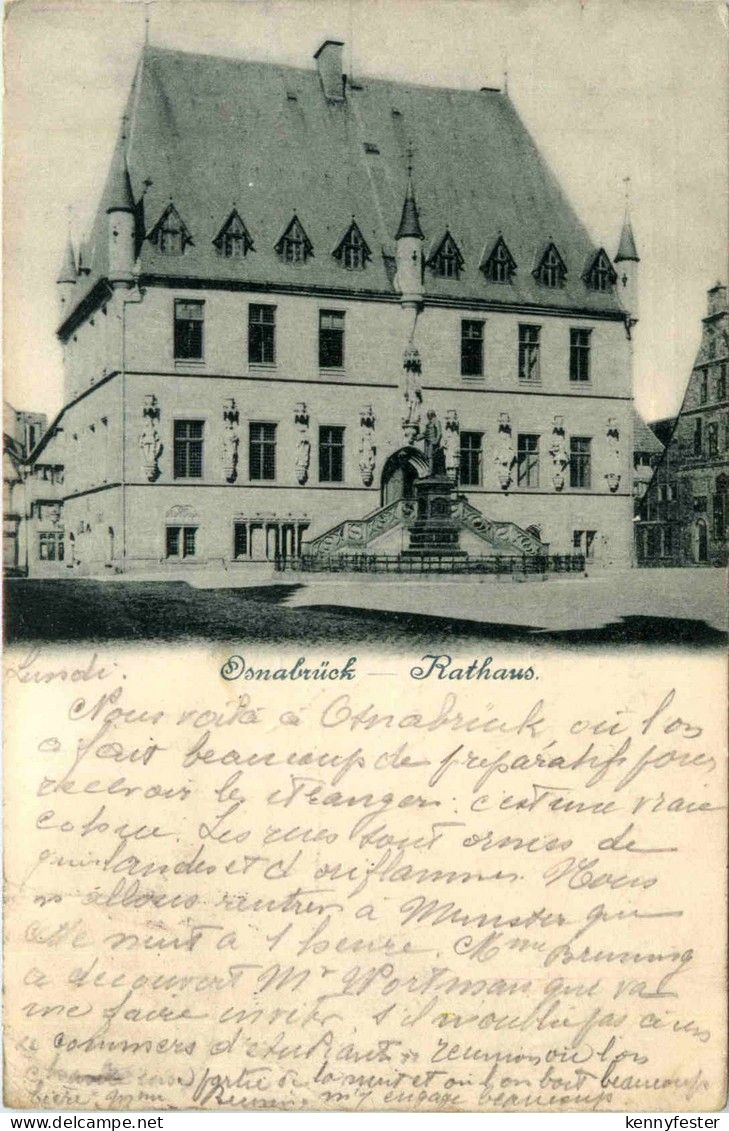 Osnabrück — Rathaus.
Lundi.
Nous voilà à Osnabrück, où l'on
a fait beaucoup de préparatifs pour
recevoir les étrangers: c'est une vraie
cohue. Les rues sont ornées de
guirlandes et d'oriflammes. Nous
n'allons rentrer à Munster que
cette nuit à 1 heure. Mme Bruning
a découvert Mr Wortman que va
me faire inviter, s'il n'oublie pas à un
commers d'étudiants réunion où l'on
partie de la nuit et où l'on boit beaucoup
bière. Mme Bruning m'y engage beaucoup
kennyfester